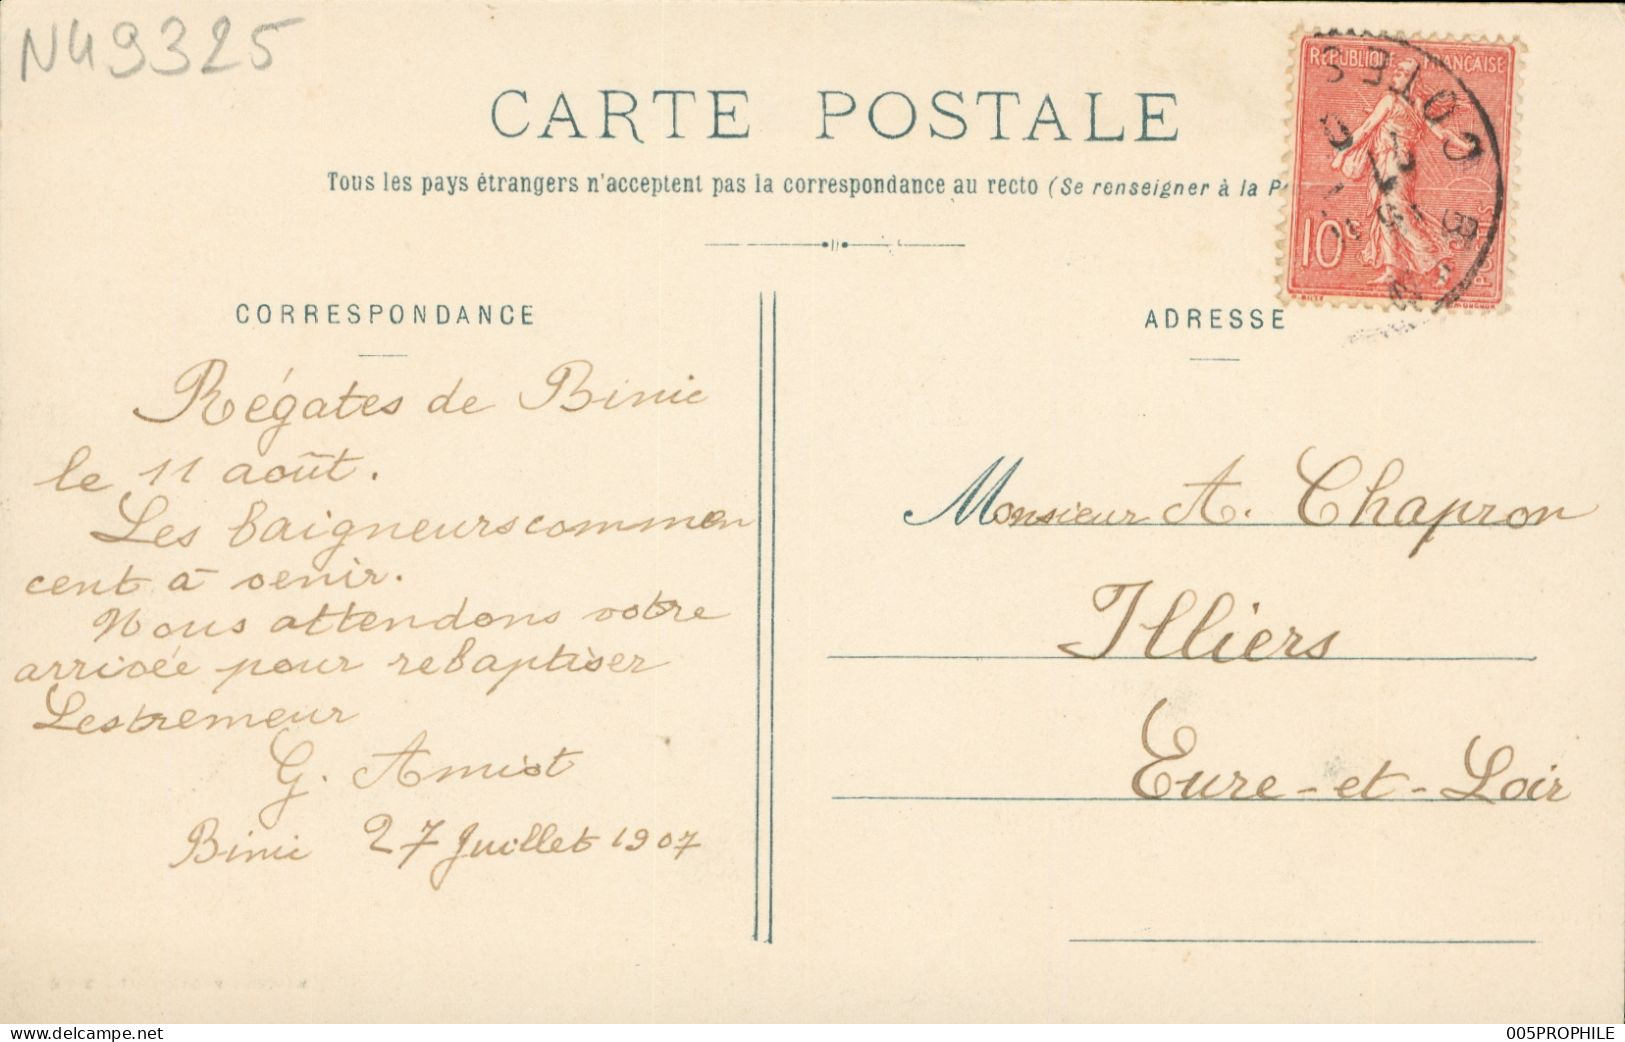 N49325
CARTE POSTALE
Tous les pays étrangers n'acceptent pas la correspondance au recto (Se renseigner à la
REPUBLIQUE FRANÇAISE
10c
POSTES
COTES
CORRESPONDANCE
Régates de Binic
le 11 août.
Les baigneurs commen
cent à venir.
Nous attendons votre
arrivée pour rebaptiser
Lestremeur
G. Amiot
Binic 27 Juillet 1907
ADRESSE
Monsieur A. Chapron
Illiers
Eure-et-Loir
www.delcampe.net
005PROPHILE